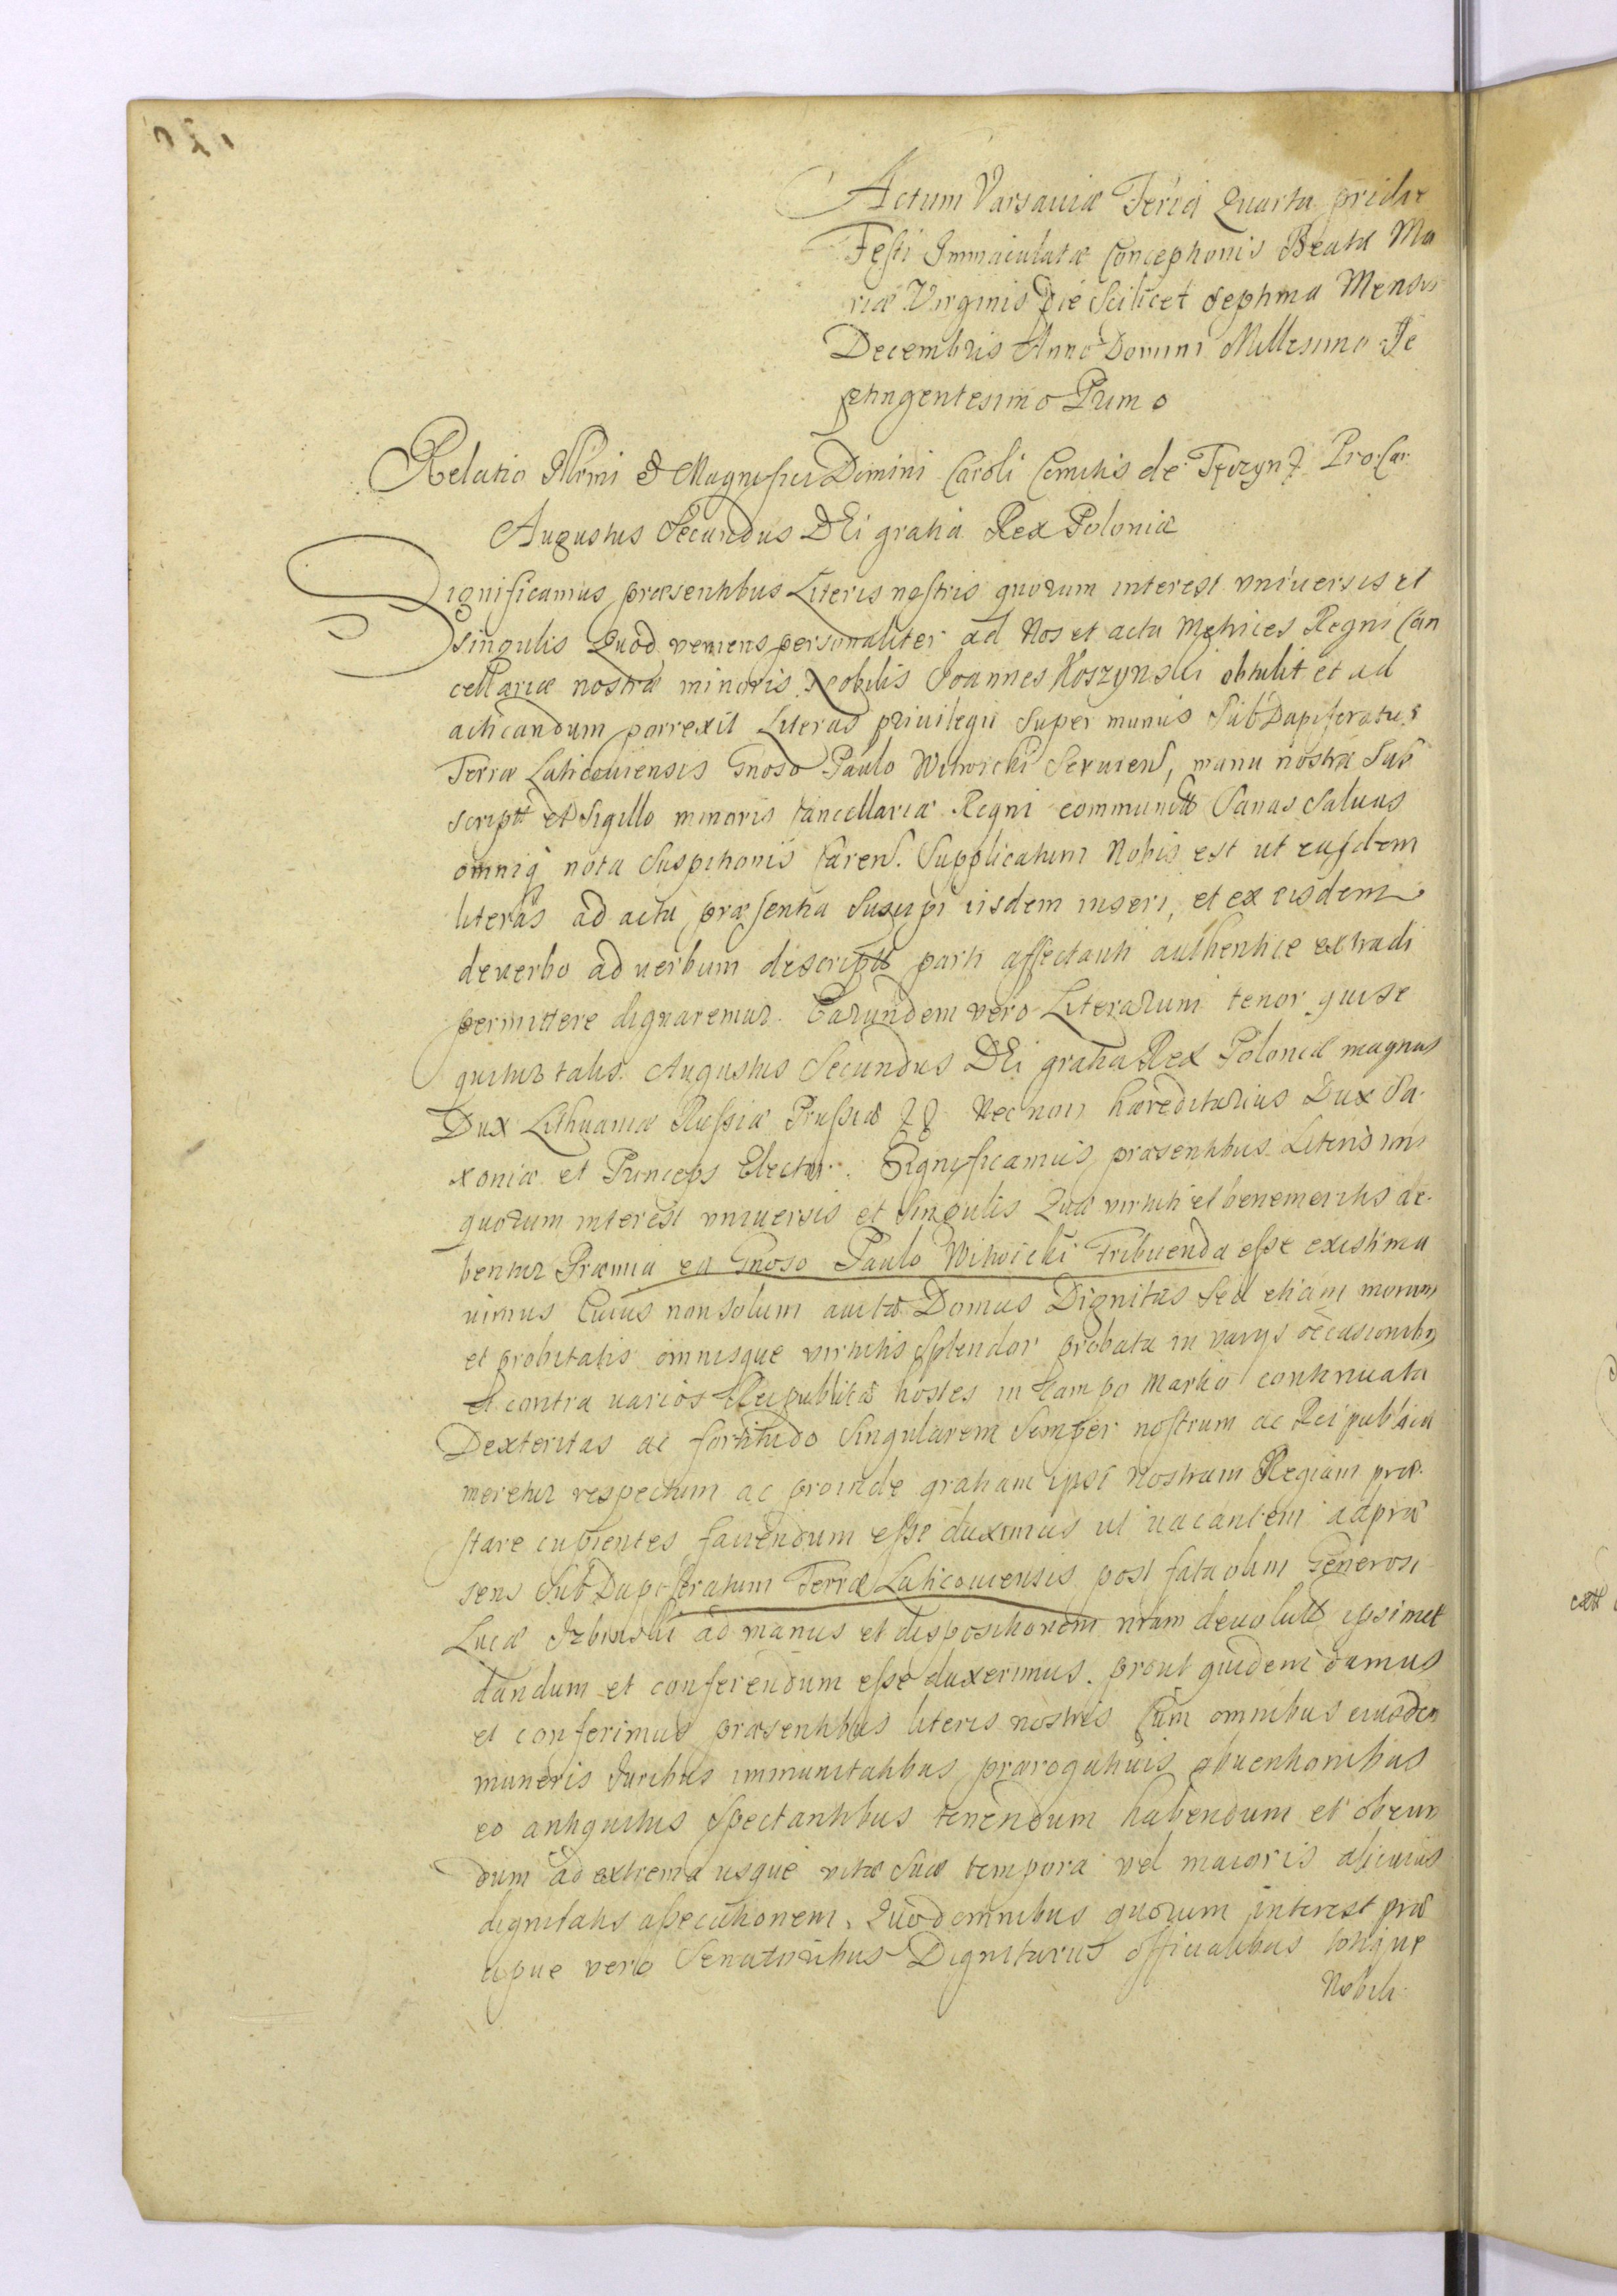 Actum Varsauiæ Feria Quarta pridie
Festi Immaculatæ Conceptionis Beatæ Ma
riæ Virginis Die Scilicet Septima Mensis
Decembris Anno Domini Millesimo Se
ptingentesimo Primo
Relatio Illrmi & Magnifici Domini Caroli Comitis de Tęczyn Pro.Can.
Augustus Secundus DEi gratia Rex Poloniæ
Significamus præsentibus Literis nostris quorum interest vniuersis et
singulis Quod veniens personaliter ad Nos et acta Metrices Regni Can
cellariæ nostræ minoris Nobilis Joannes Koszynski obtulit et ad
acticandum porrexit Literas priuilegii Super munus SubDapiferatus
Terræ Laticouiensis Gnoso Paulo Witwicki Seruien, manu nostra Sub
script et Sigillo minoris Cancellariæ Regni communit Sanas Saluas
omniq nota Suspitionis Caren. Supplicatum Nobis est ut eusdem
literas ad acta præsentia Suscipi iisdem inseri, et ex eisdem
deverbo ad verbum descript parti affectanti authentice extradi
permittere dignaremur. Earundem vero Literarum tenor quise
quitur talis. Augustus Secundus DEi gratia Rex Poloniæ magnus
Dux Lithuaniæ Russiæ Prussiæ Nec non hæreditarius Dux Sa.
xoniæ et Princeps Elector. Significamus præsentibus Literis nris
quorum interest vniuersis et Singulis Quæ virtuti et benemeritis de.
bentur Præmia ea Gnoso Paulo Witwicki Tribuenda esse existima
uimus Cuius non Solum auita Domus Dignitas Sed etiam morum
et probitatis omnisque virtutis Splendor probata in varys occasionibus
et contra uarios Reipublicæ hostes in Campo Martio continuata
Dexteritas ac fortitudo Singularem Semper nostrum ac Reipublicæ
meretur respectum ac proinde gratiam ipsi Nostram Regiam præ.
stare cupientes, fauendum esse duximus ut uacantem adpræ
sens SubDapiferatum Terræ Laticouiensis post fata olim Generosi
Lucæ Izbinski ad manus et dispositionem nram deuolut ipsimet
dandum et conferendum esse duxerimus. prout quidem damus
et conferimus præsentibus literis nostris Cum omnibus eiusdem
muneris Juribus immunitatibus prærogatiuis obuentionibus
eo antiquitus Spectantibus tenendum habendum et obeun
dum ad extrema usque vitæ Suæ tempora vel maioris alicuius
dignitatis assecutionem. Quod omnibus quorum interest præ
cipue vero Senatoribus Dignitariis officialibus totique
Nobili.